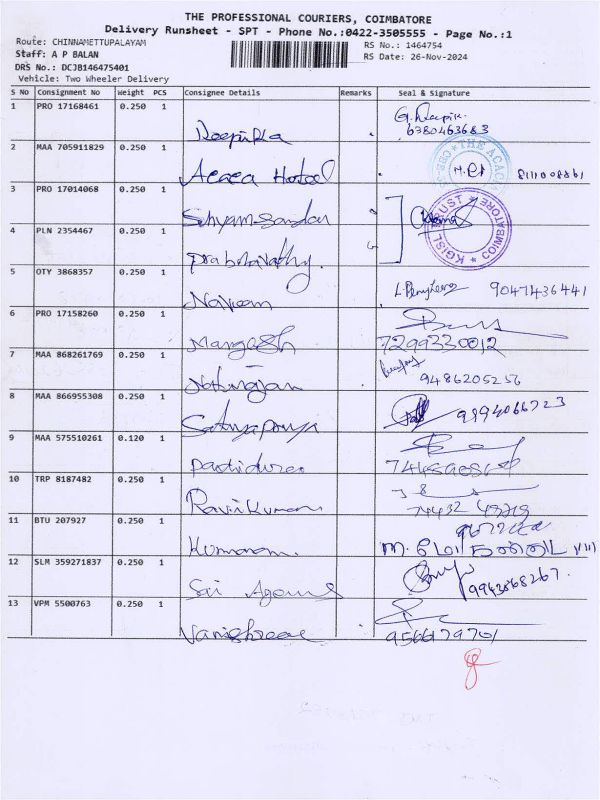 THE PROFESSIONAL COURIERS, COIMBATORE
Delivery Runsheet - SPT - Phone No.:0422-3505555 - Page No.:1
Route: CHINNAMETTUPALAYAM
RS No.: 1464754
Staff: A P BALAN
RS Date: 26-Nov-2024
DRS No.: DCJB146475401
Vehicle: Two Wheeler Delivery
S No Consignment No Weight PCS Consignee Details Remarks Seal & Signature
1 PRO 17168461 0.250 1 Deepika G. Deepik.
6380463683
2 MAA 705911829 0.250 1 Acaca Hotel THE ACACI
3 PRO 17014068 0.250 1 Shyam Sundar KGISL TRUST * COIMBATORE *
4 PLN 2354467 0.250 1 Prabhavathy.
5 OTY 3868357 0.250 1 Naveen 9047436441
6 PRO 17158260 0.250 1 Mangesh
7299330012
7 MAA 868261769 0.250 1 Natarajan
9486205256
8 MAA 866955308 0.250 1 Sathyapriya 9994066723
9 MAA 575510261 0.120 1
10 TRP 8187482 0.250 1 Ravikumar
11 BTU 207927 0.250 1 Kumaran
12 SLM 359271837 0.250 1 Sai Agencies 9943868267.
13 VPM 5500763 0.250 1 Vanishree
9566179701